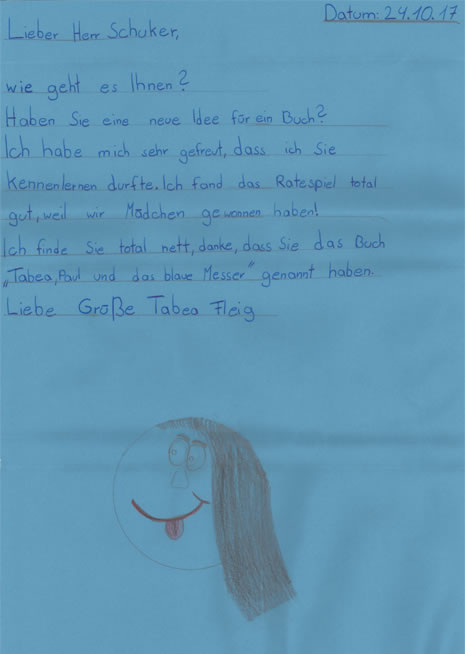 Datum: 24.10.17
Lieber Herr Schuker,
wie geht es Ihnen?
Haben Sie eine neue Idee für ein Buch?
Ich habe mich sehr gefreut, dass ich Sie
Kennenlernen durfte. Ich fand das Ratespiel total
gut, weil wir Mädchen gewonnen haben!
Ich finde Sie total nett, danke, dass Sie das Buch
„Tabea, Paul und das blaue Messer" genannt haben.
Liebe Größe Tabea Fleig